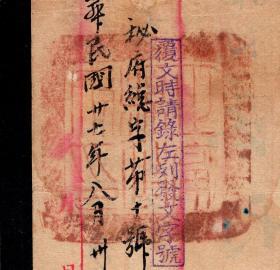 覆文時請錄左列發文字號
秘府總字第十號
華民國卅七年八月卅